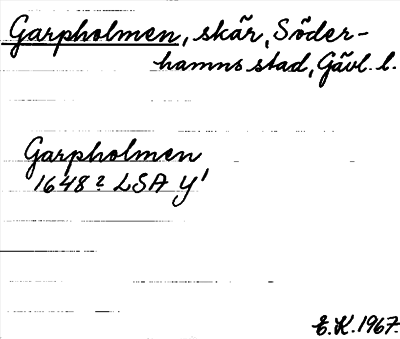 Garpholmen, skär, Söder-
hamns stad, Gävl. l.
Garpholmen
1648? LSA Y'
E.K. 1967.